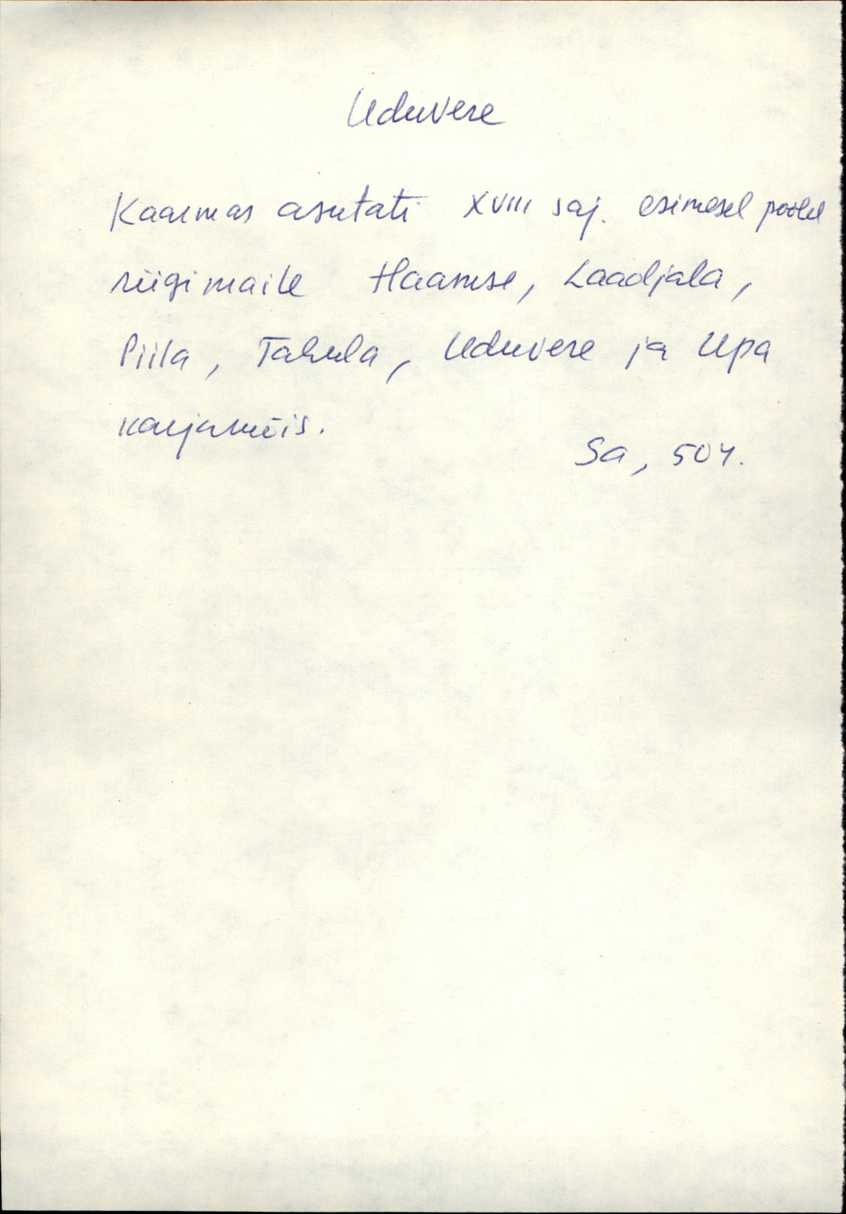 Uduvere
Kaarmas asutati XVIII saj. esimesel poolel
riigimaile Haamse, Laadjala,
Piila, Tahula, Uduvere ja Upa
karjamõis.
Sa, 504.